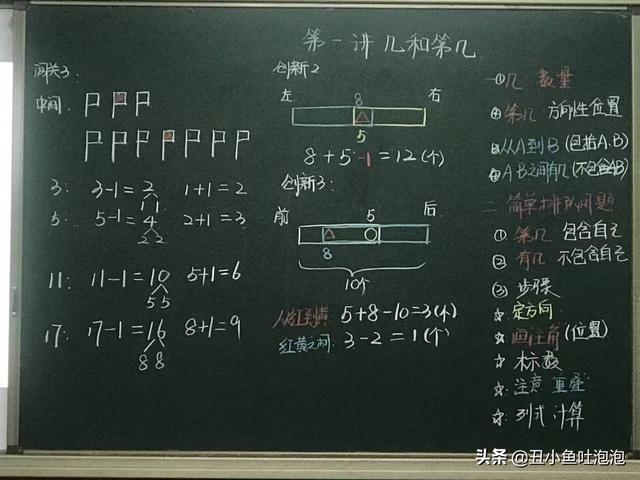 第一讲 几和第几
闯关3:
中间
3: 3-1=2 1+1=2
1 1
5: 5-1=4 2+1=3
2 2
11: 11-1=10 5+1=6
5 5
17: 17-1=16 8+1=9
8 8
创新2
左 8 右
5
8+5-1=12(个)
创新3:
前 5 后
8
10个
从红到黄: 5+8-10=3(个)
红黄之间: 3-2=1(个)
一 几 数量
④ 第几 方向性位置
③ 从A到B (包括A.B)
④ A B之间有几 (不包含AB)
二 简单排队问题
① 第几 包含自己
② 有几 不包含自己
③ 步骤
☆ 定方向
☆ 画主角 (位置)
☆ 标数
☆ 注意 重叠
☆ 列式 计算
头条 @丑小鱼吐泡泡